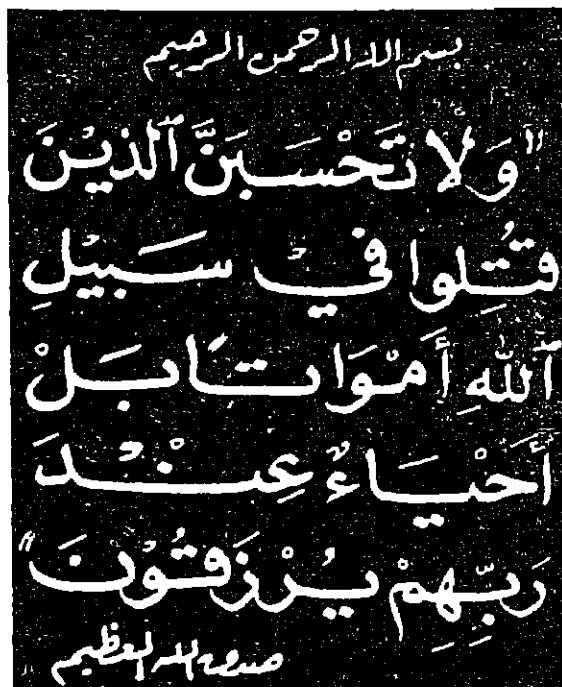 بسم الله الرحمن الرحيم
"وَلَا تَحْسَبَنَّ ٱلَّذِيْنَ
قُتِلُوا فِيْ سَبِيْلِ
ٱللَّهِ أَمْوَاتًا بَلْ
أَحْيَاءٌ عِنْدَ
رَبِّهِمْ يُرْزَقُوْنَ"
صدق الله العظيم